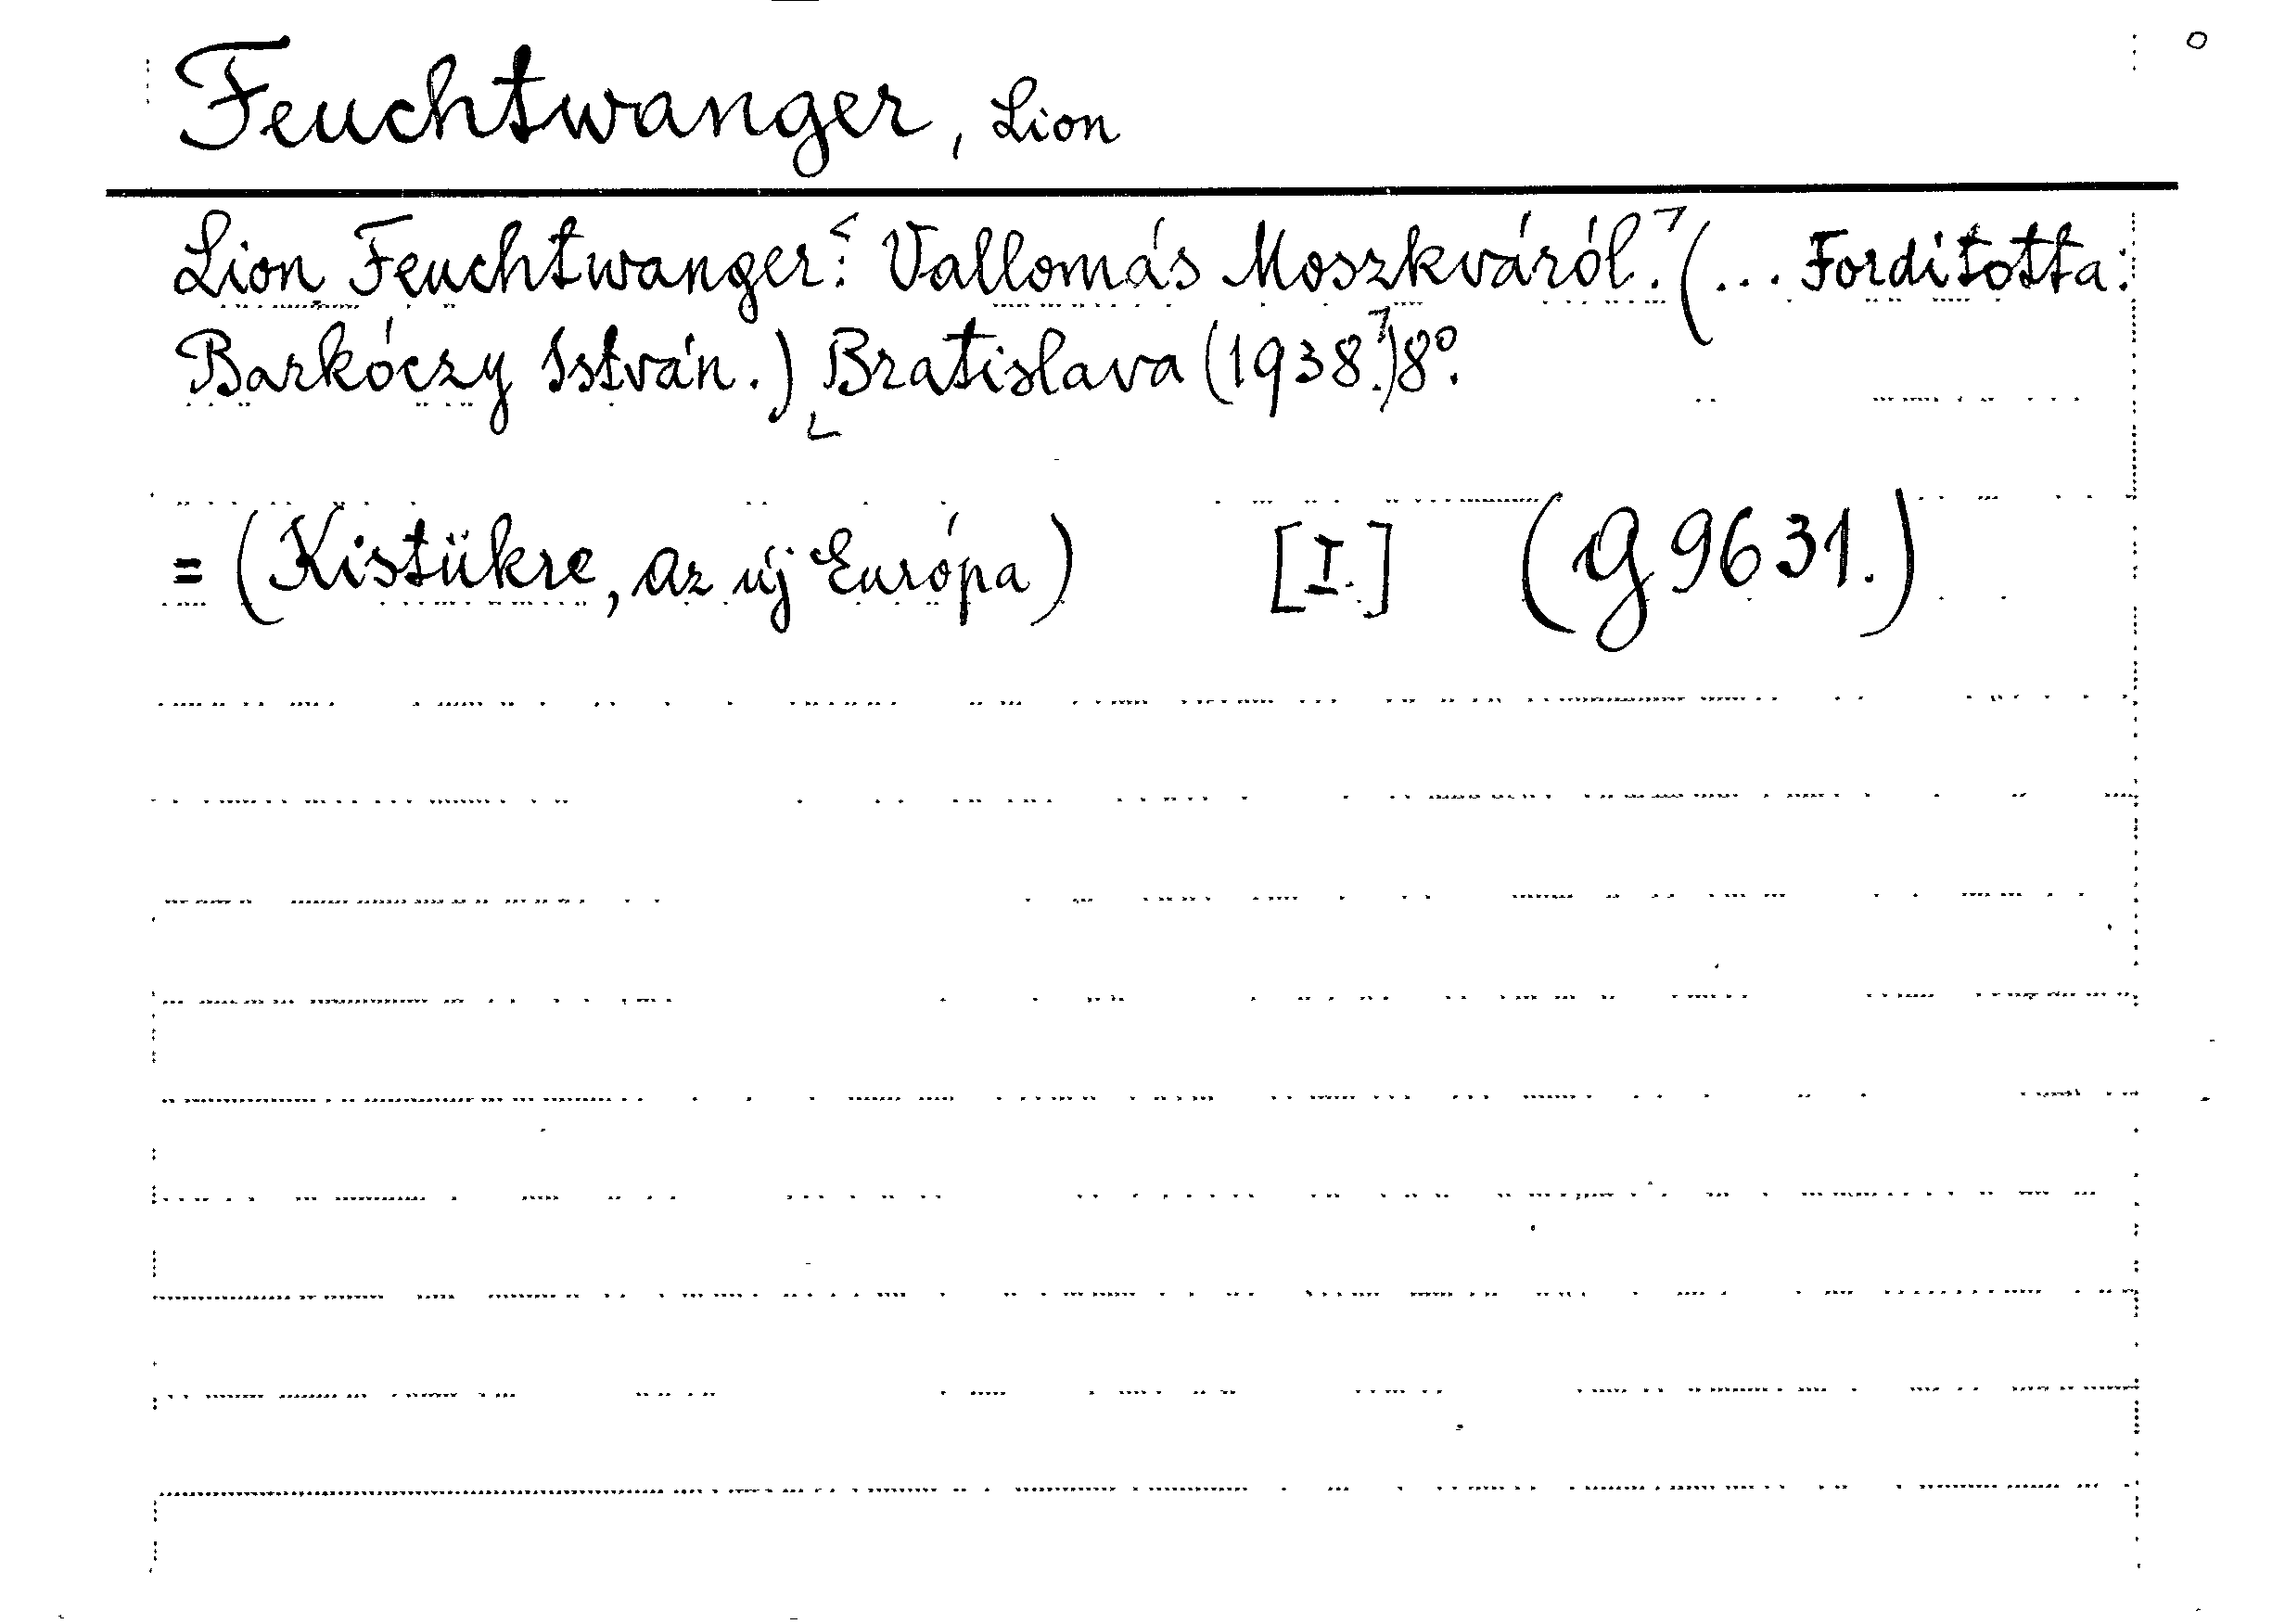 Feuchtwanger, Lion
Lion Feuchtwanger: Vallomás Moszkváról. (... Fordította:
Barkóczy István.) Bratislava (1938.) 8°.
= (Kistükre, Az új Európa) [I.] (G 9631.)